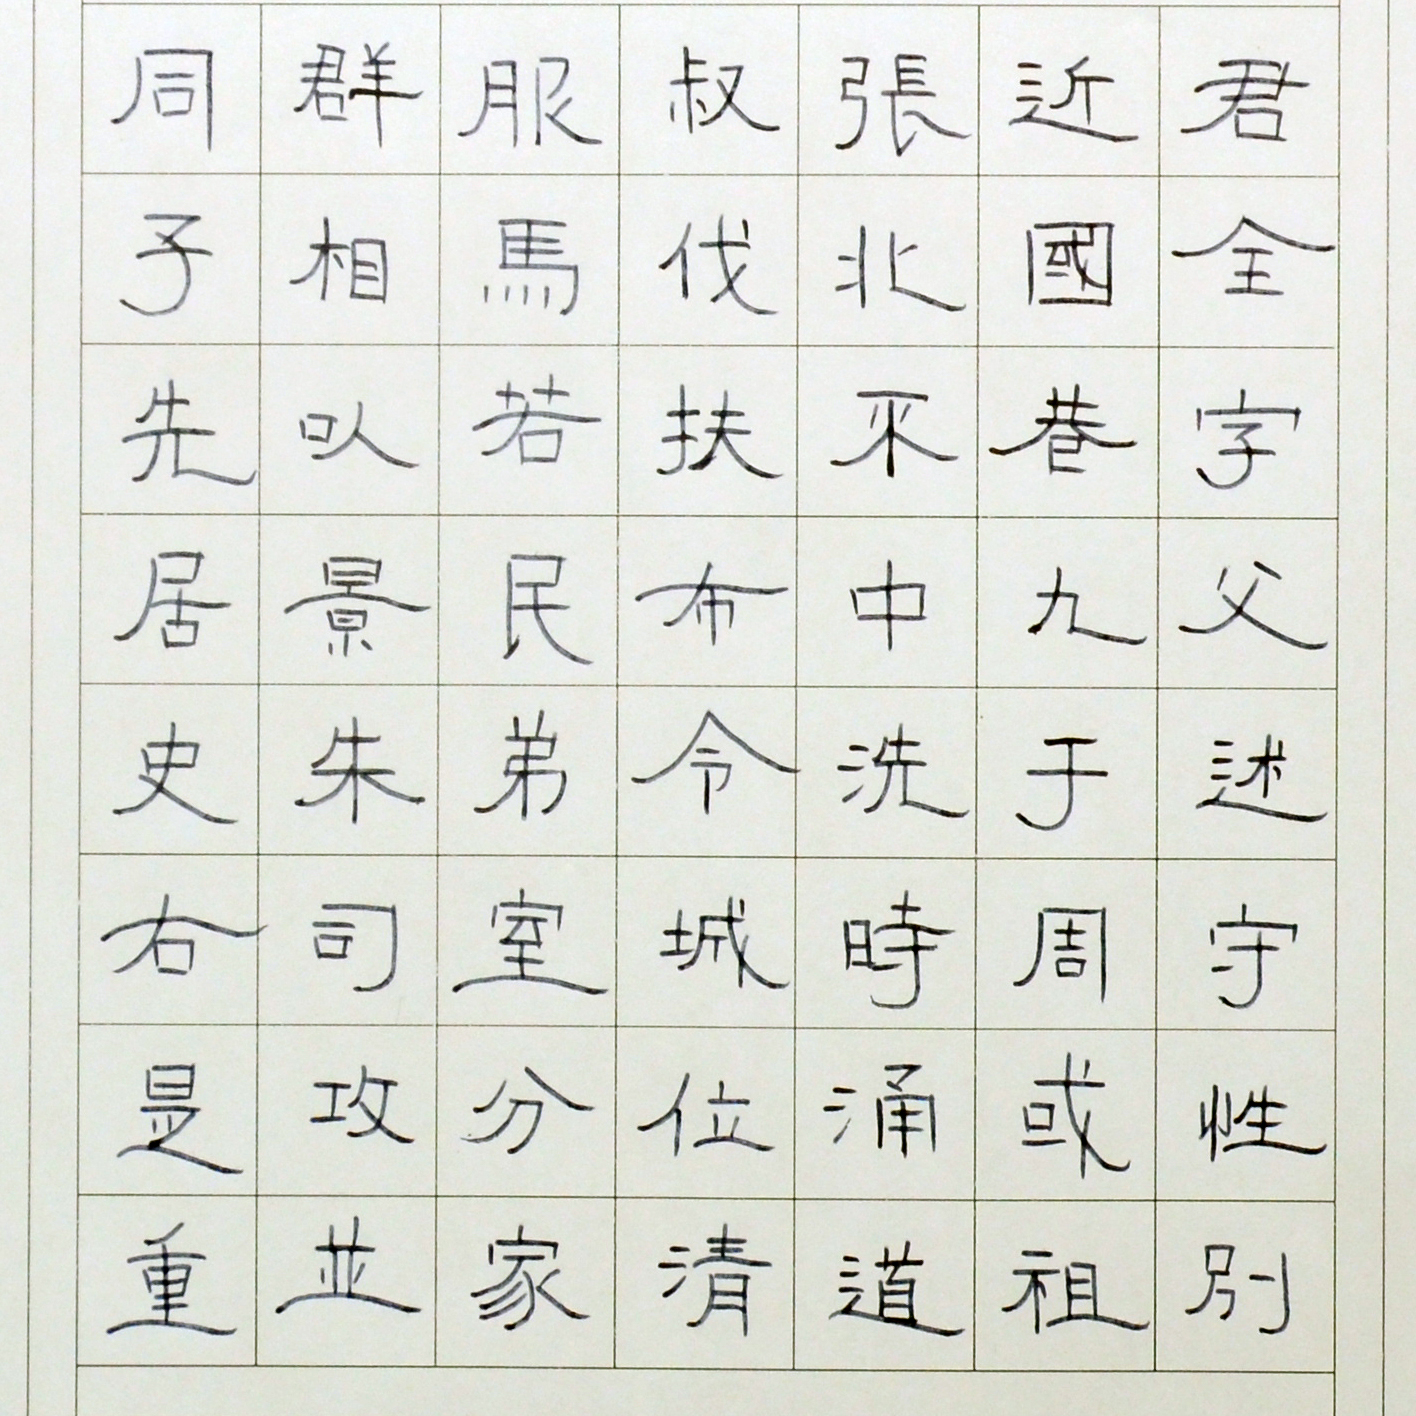 君全字父述守性別
近國巷九于周或祖
張北平中洗時涌道
叔伐扶布令城位清
服馬若民弟室分家
群相以景朱司攻並
同子先居史右是重